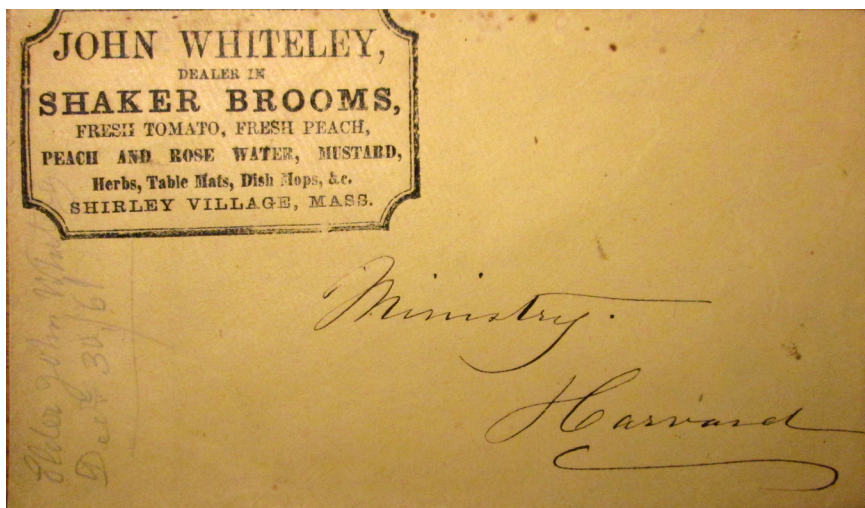 JOHN WHITELEY,
DEALER IN
SHAKER BROOMS,
FRESH TOMATO, FRESH PEACH,
PEACH AND ROSE WATER, MUSTARD,
Herbs, Table Mats, Dish Mops, &c.
SHIRLEY VILLAGE, MASS.
Ministry.
Harvard
Elder John
Dec 30/67